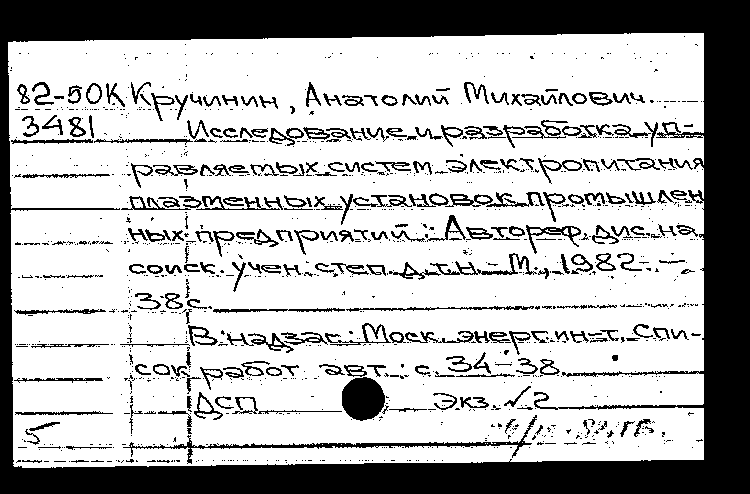 82-50К Кручинин, Анатолий Михайлович.
3481 Исследование и разработка уп-
равляемых систем электропитания
плазменных установок промышлен
ных предприятий : Автореф. дис. на
соиск. учен. степ. д.т.н. - М., 1982. -
38 с.
В надзаг.: Моск. энерг. ин-т. Спи-
сок работ авт.: с. 34-38.
ДСП Экз. √ 2
5